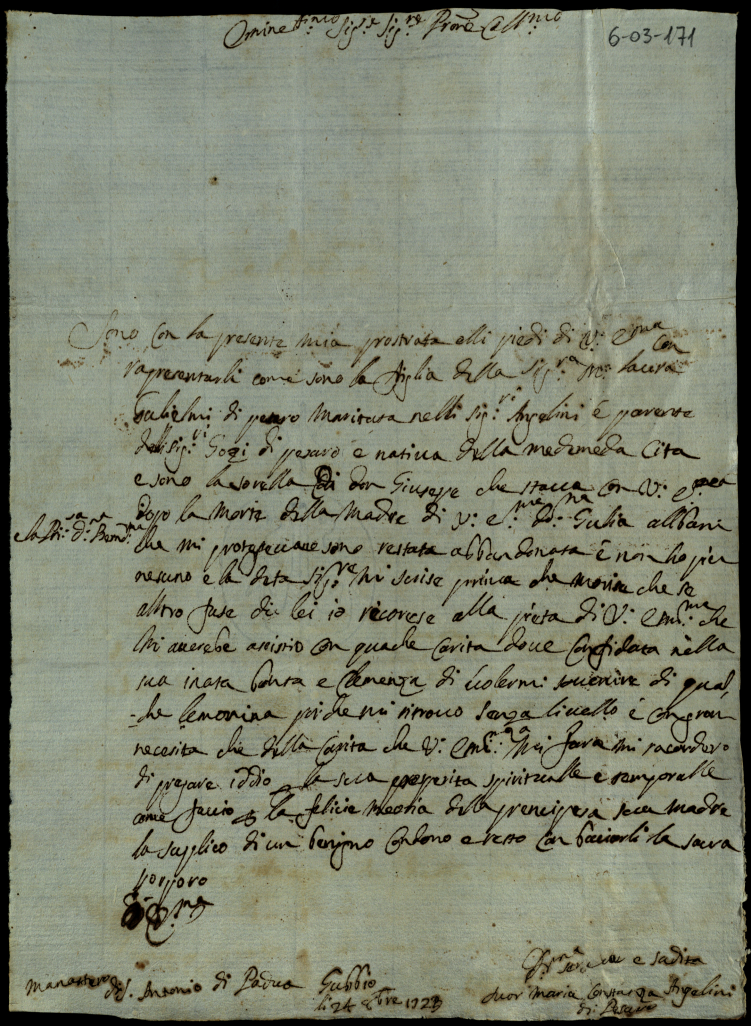 Eminen.mo Sig.re Sig.re Prone Coll.mo
6-03-171
Sono con la presente mia prostrata alli piedi di V: E.ma con
rapresentarli come sono la figlia della Sig.ra
Gulielmi di pesaro Maritata nelli Sig.ri Angelini e parente
delli Sig.ri Gozi di pesaro e nativa della medemeda Cita
e sono la sorella di don Giusepe che stava con V: E.
dopo la Morte della Madre di V: E.ma D: Giulia albani
e la Pri.sa d.na Bern.na
che mi protegeva sono restata abbandonata e non ho piu
nesuno e la deta Sig.re Mi scrise prima che morise che se
altro fuse di lei io ricorese alla pieta di V: Em.ma che
Mi averebe asistio con quache Carita dove Confidata nella
sua inata bonta e Clemenza di volermi sovenire di qual
-che lemonina poiche mi ritrovo Senza livello e con gran
necesita che della Carita che V: Em.za Mi fara mi racordero
di pregare iddio la sua prosperita spirituale e temporalle
come faccio la felicie Memoria della prencipesa sua Madre
la suplico di un benigno Condono e resto con baciarli la sacra
porporo
Di E.ma
Manastero di S. Antonio di Padua Gubbio
li 24 8bre 1723
serva e sudita
Suor Maria Constanza Angelini
di Pesaro